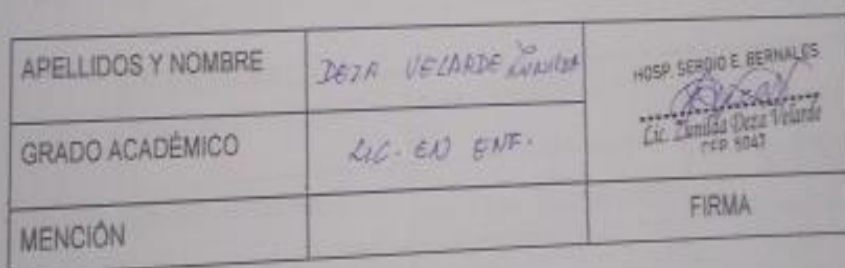 APELLIDOS Y NOMBRE
DEZA VELARDE ZUNILDA
HOSP. SERGIO E. BERNALES
Lic. Zunilda Deza Velarde
CEP. 5047
GRADO ACADÉMICO
LIC. EN ENF.
MENCIÓN
FIRMA